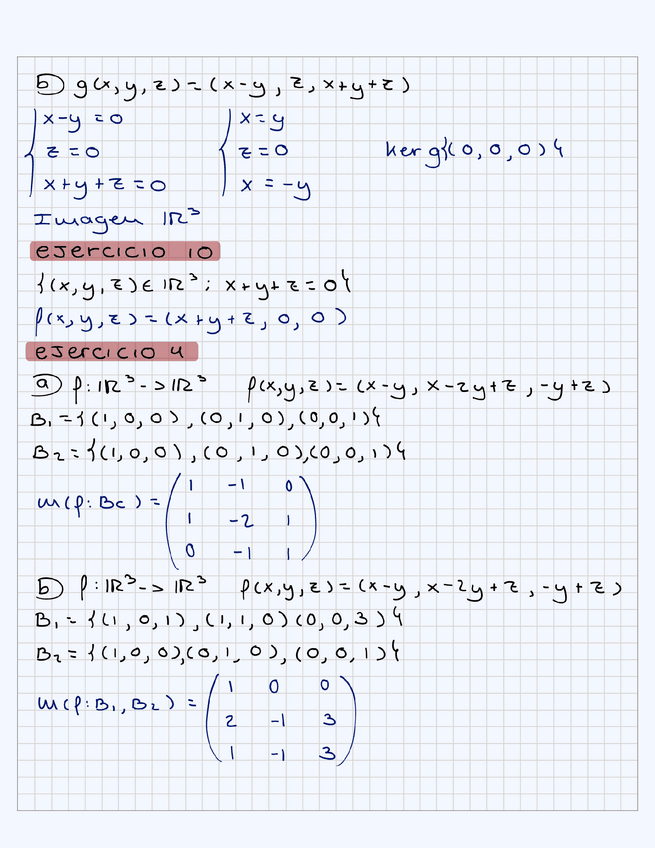 b) g(x,y,z) = (x-y, z, x+y+z)
{ x-y = 0 { x = y
z = 0 z = 0 ker g{(0,0,0)}
x+y+z = 0 x = -y
Imagen ℝ³
ejercicio 10
{(x,y,z) ∈ ℝ³ ; x+y+z = 0}
f(x,y,z) = (x+y+z, 0, 0)
ejercicio 4
a) f: ℝ³ -> ℝ³ f(x,y,z) = (x-y, x-2y+z, -y+z)
B₁ = {(1,0,0), (0,1,0), (0,0,1)}
B₂ = {(1,0,0), (0,1,0), (0,0,1)}
1 -1 0
m(f: Bc) = 1 -2 1
0 -1 1
b) f: ℝ³ -> ℝ³ f(x,y,z) = (x-y, x-2y+z, -y+z)
B₁ = {(1,0,1), (1,1,0) (0,0,3)}
B₂ = {(1,0,0), (0,1,0), (0,0,1)}
1 0 0
m(f: B₁, B₂) = 2 -1 3
1 -1 3